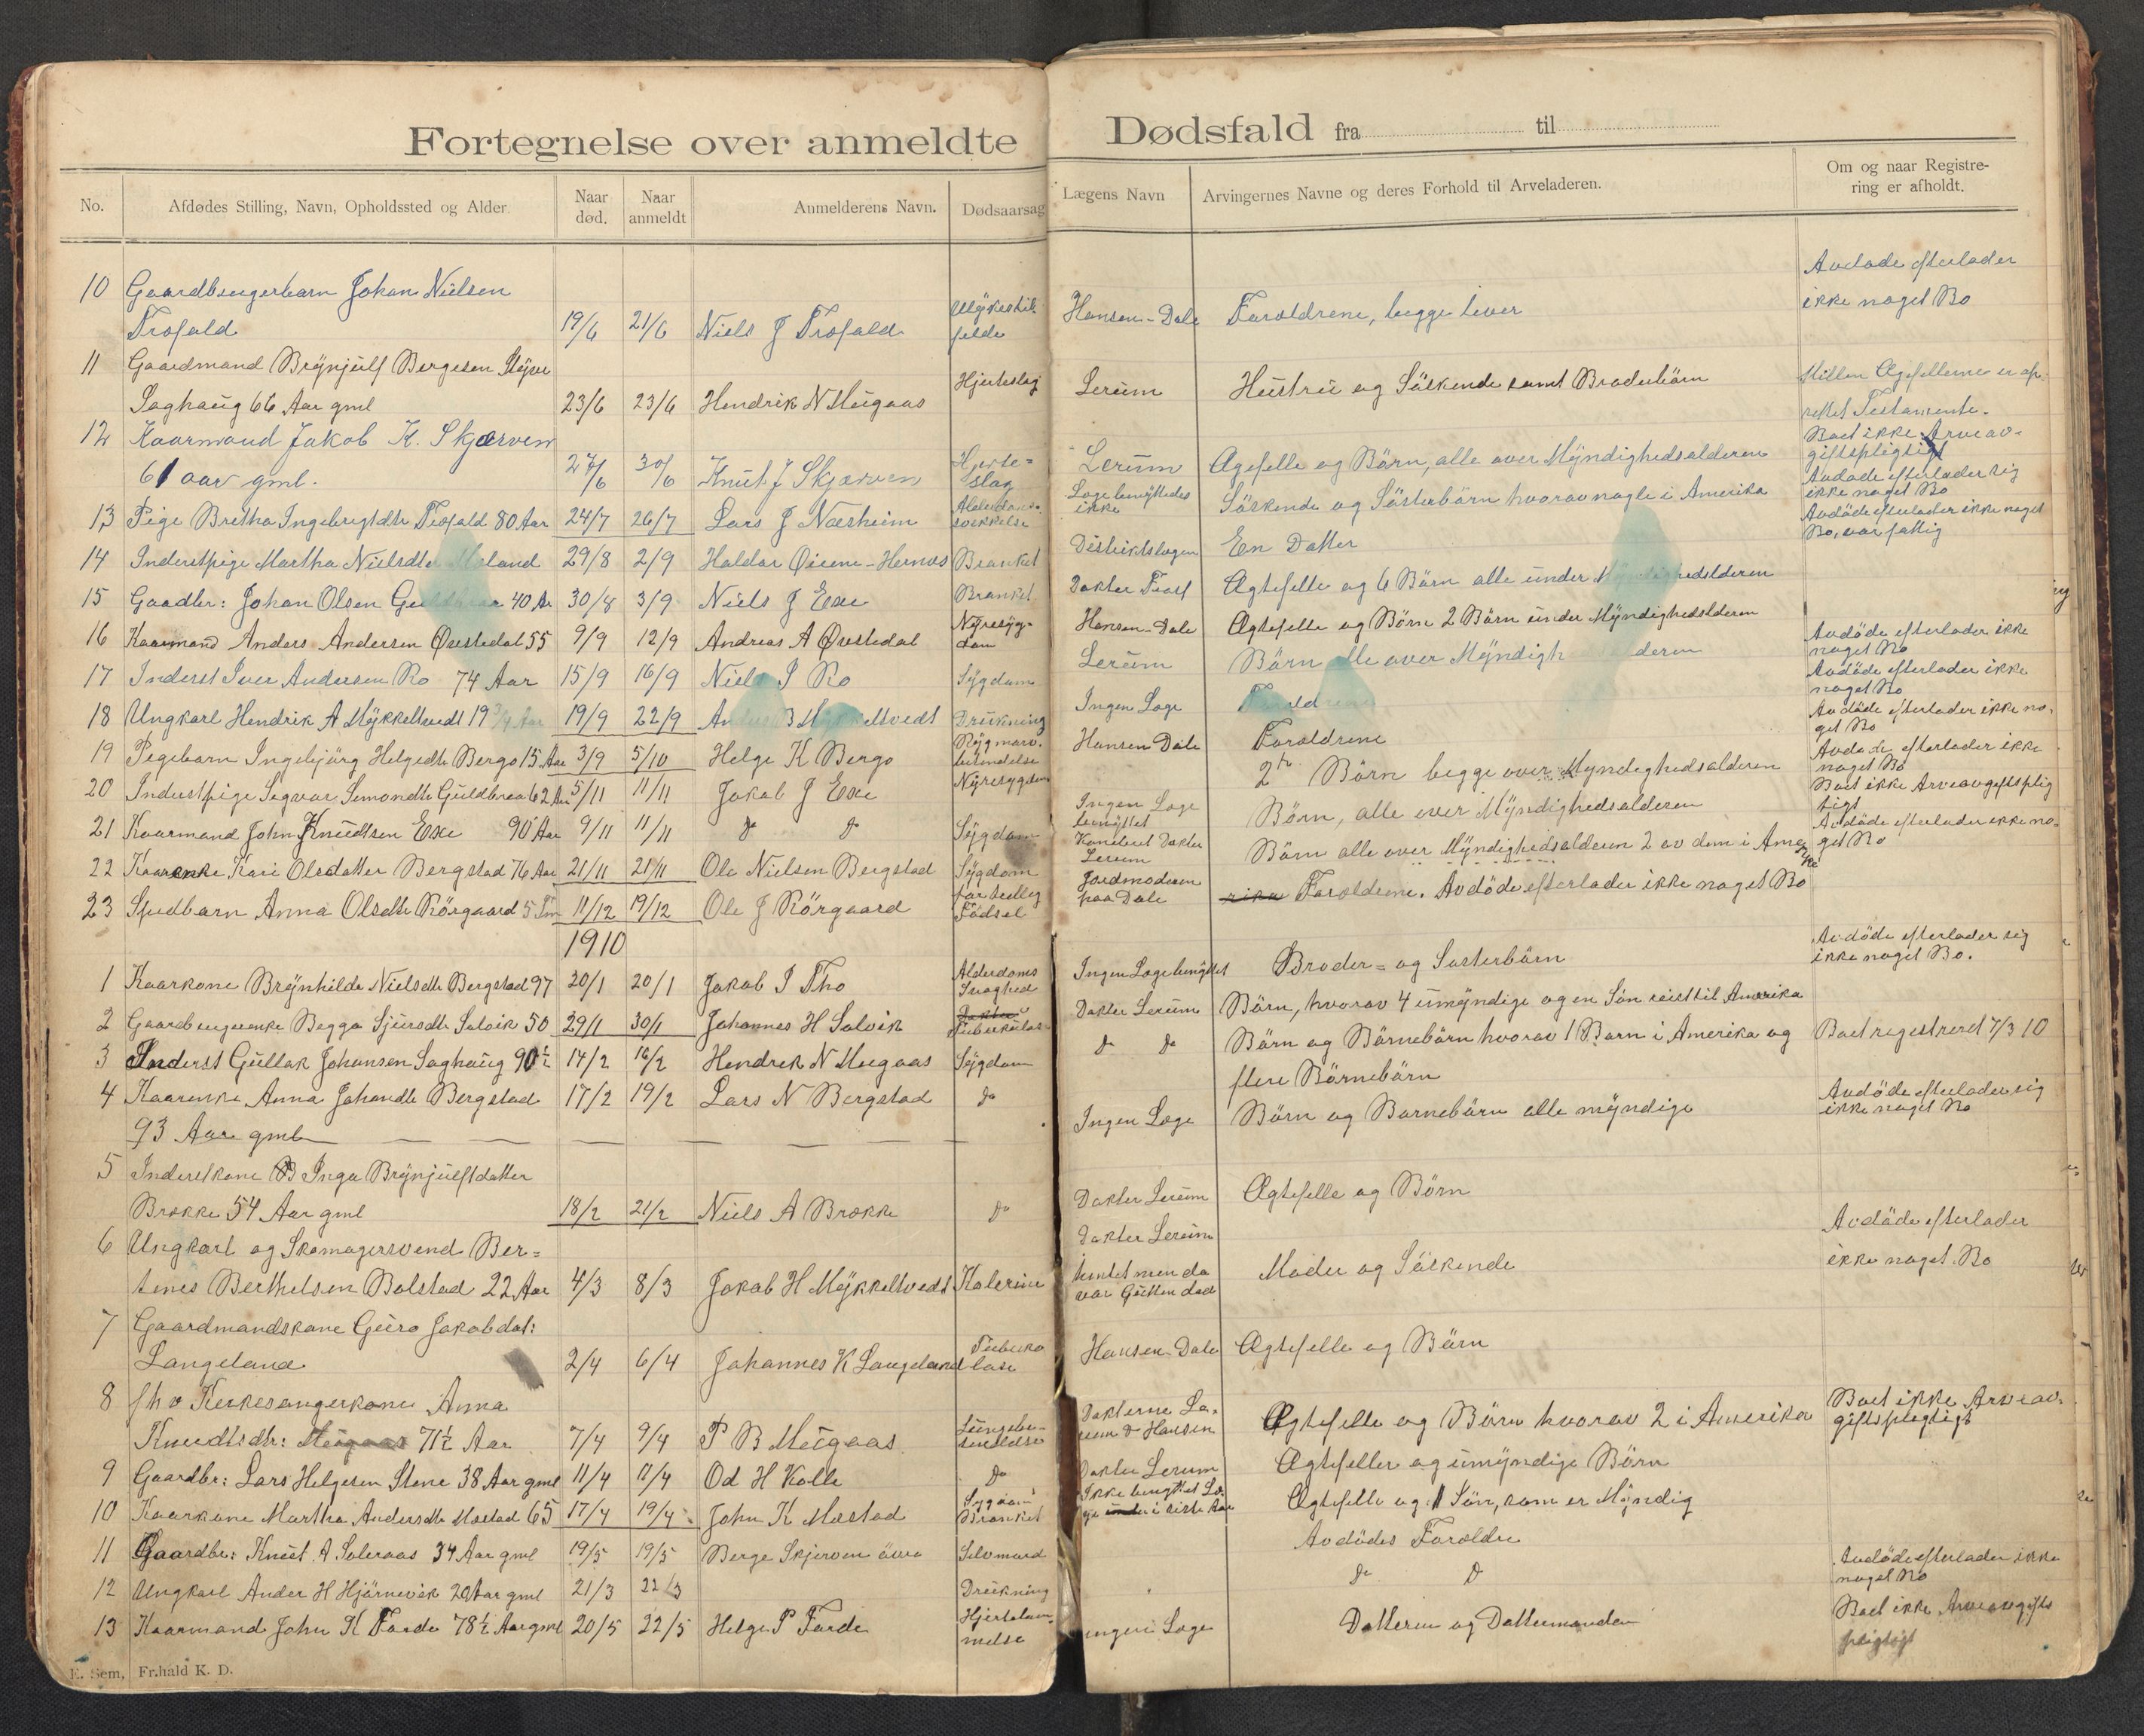 Fortegnelse over anmeldte Dødsfald fra til
No. Afdødes Stilling, Navn, Opholdssted og Alder. Naar død. Naar anmeldt Anmelderens Navn. Dødsaarsag Lægens Navn Arvingernes Navne og deres Forhold til Arveladeren. Om og naar Registrering er afholdt.
10 Gaardbrugerbarn Johan Nielsen
Trofald 19/6 21/6 Niels J Trofald Hansen-Dale Foræeldrene, begge lever Avdøde efterlader
ikke noget Bo
11 Gaardmand Brynjulf Bergesen
Saghaug 66 Aar gml 23/6 23/6 Hendrik N Meugaas Hjerteslag Lerum Hustru og Söskende samt Broderbörn Mellem Ægtefellerne er op-
rettet Testamente.
12 Kaarmand Jakob K. Skjerven
61 aar gml. 27/6 30/6 Knut J Skjerven Hjerte-
slag Lerum Ægefelle og Börn, alle over Myndighedsalderen Boet ikke Arveav-
giftspligtigt
13 Pige Bretha Ingebrigtdtr Trofald 80 Aar 24/7 26/7 Lars J Næsheim Lægebenyttedes
ikke Söskende og Søsterbörn hvorav nogle i Amerika Avdøde efterlader sig
ikke noget Bo
14 Inderstpige Martha Nielsdtr 29/8 2/9 Haldor Øiene-Hernes Brænket Distriktslægen En Datter Avdöde efterlader ikke noget
Bo, var fattig
15 Gaadbr: Johan Olsen 40 Ar 30/8 3/9 Niels J Exe Brænket Dokter Ægtefelle og 6 Börn alle under
16 Kaarmand Anders Andersen Øvstedal 55 9/9 12/9 Andreas A Øvstedal Nyresyg-
dom Hansen-Dale Ægtefelle og Börn 2 Börn under Myndighedsalderen
17 Inderst Iver Andersen Ro 74 Aar 15/9 16/9 Niels I Ro Sygdom Lerum Börn alle over Avdøde efterlader ikke
noget Bo
18 Ungkarl Hendrik A Mykkeltvedt 19 3/4 Aar 19/9 22/9 Drukning Ingen Læge Avdøde efterlader ikke
noget Bo
19 Pigebarn Ingebjørg Helgedtr Bergo 15 Aar 3/9 5/10 Helge K Bergo Rygmarv.
betendelse Hansen Dale Foræeldrene Avdöde efterlader ikke no-
get Bo
20 Inderstpige Semondtr Guldbraa 62 Aar 5/11 11/11 Jakob J Exe Nyresygdom 2 Börn begge over Myndighedsalderen Avdøde efterlader ikke
noget Bo
21 Kaarmand John Knudtsen Exe 90 Aar 9/11 11/11 do do Sygdom Ingen Læge
benyttet Börn, alle over Myndighedsalderen Boet ikke Arveavgiftsplig
tigt
22 Kaarenke Kari Olsdatter Bergstad 76 Aar 21/11 21/11 Ole Nielsen Bergstad Sygdom Dokter
Lerum Börn alle over Myndighedsalderen 2 av dem i Ame
Avdöde efterlader ikke no-
get Bo
23 Spedbarn Anna Olsdtr Rörgaard 11/12 19/12 Ole J Rörgaard för tedleg
Födsel Jordmoderen
paa Dale rika Foræeldrene. Avdöde efterlader ikke noget Bo
1910
1 Kaarkone Brynhilde Nielsdtr Bergstad 97 20/1 20/1 Jakob I Tho Alderdoms
Svaghed Ingen Læge benyttet Broder- og Søsterbörn Avdöde efterlader sig
ikke noget Bo.
2 Gaardbrugerenke Begga Sjursdtr Salvik 50 29/1 30/1 Johannes H Salvik Dokter Lerum Börn, hvorav 4 umyndige og en Sön reist til Amerika
3 Inderst Gullak Johansen Saghaug 90½ 14/2 16/2 Hendrek N Meugaas Sygdom do do Börn og Börnebörn hvorav 1 Barn i Amerika og Boet registrerd 7/3 10
flere Börnebörn
4 Kaarenke Anna Johandtr Bergstad 17/2 19/2 Lars N Bergstad do Ingen Læge Börn og Barnebörn alle myndige Avdöde efterlader sig
ikke noget Bo
93 Aar gml
5 Inderstkone Inga Brynjulfsdatter
Brække 54 Aar gml 18/2 21/2 Niels A Brække do Dokter Lerum Ægtefelle og Börn
6 Ungkarl og Skomagersvend Ber-
tines Berthelsen Bolstad 22 Aar 4/3 8/3 Jakob H Mykkeltvedt Dokter Lerum
hentet men da
var Gutten död Moder og Söskende Avdöde efterlader
ikke noget Bo
7 Gaardmandskone Guro Jakobdat:
Langeland 2/4 6/4 Johannes K Langeland Tuberku
lose Hansen-Dale Ægtefelle og Börn
8 fhv Kerkesangerkone Anna
Knudtsdtr: Meugaas 71½ Aar 7/4 9/4 P B Meugaas Dokterne Le-
rum & Hansen Ægtefelle og Börn hvorav 2 i Amerika Boet ikke Arveav-
giftsplegtigt
9 Gaardbr: Lars Helgesen Stene 38 Aar gml 11/4 11/4 Od H Kolle do Dokter Lerum Ægtefeller og umyndige Börn
10 Kaarkone Martha Andersdtr Mæstad 65 17/4 19/4 John K Mæstad Sygdom
Brænket Ikke Ægtefelle og 1 Sön, som er Myndig
11 Gaardbr: Knut A Soleraas 34 Aar gml 19/5 19/5 Berge Skjerven övre Selvmord Avdödes Foræeldre
12 Ungkarl Ander H Hjörnevik 20 Aar gml 21/3 22/3 Drukning do do Avdöde efterlader ikke
noget Bo
13 Kaarmand John K Farde 78½ Aar gml 20/5 22/5 Helge P Farde Hjertelam-
melse ingen Læge Datteren og Dattermanden Boet ikke Arveavgifts
pligtigt
E. Sem, Fr.hald K. D.